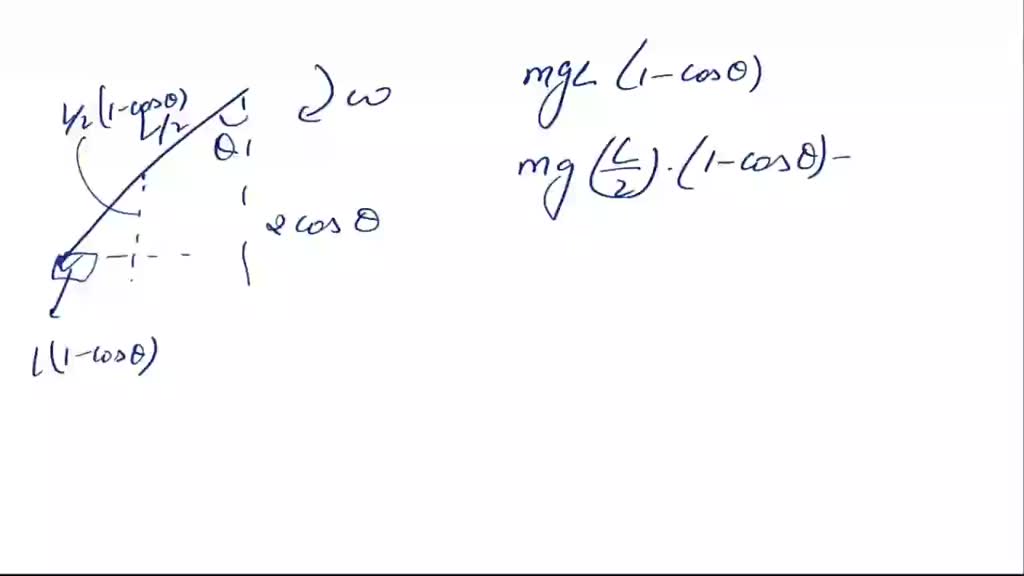 L/2 (1-cosθ)
L/2
θ
ω
cos θ
l(1-cosθ)
mgL (1-cosθ)
mg (L/2) · (1-cosθ) -